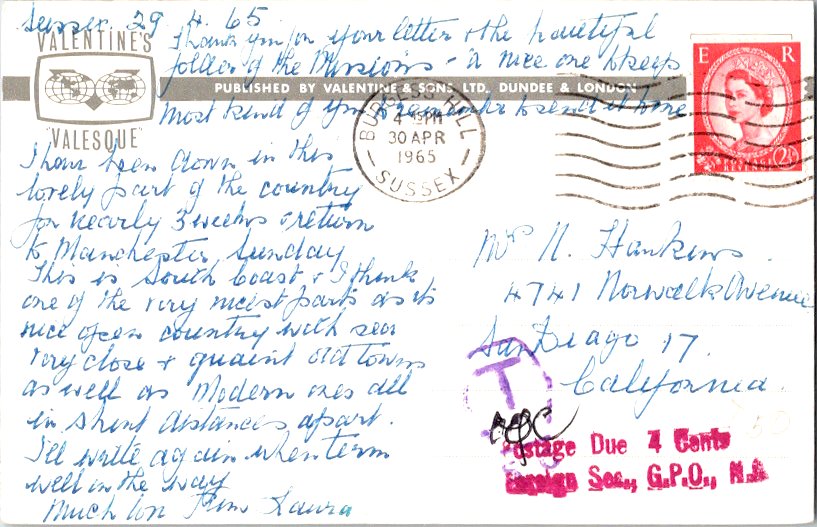 Sussex 29 4. 65
VALENTINE'S
Thank you for your letter & the beautiful
folder of the Missions - a nice one to keep
PUBLISHED BY VALENTINE & SONS, LTD., DUNDEE & LONDON
most kind of you to remember to send it home
"VALESQUE"
I have been down in this
lovely part of the country
for nearly 3 weeks & return
to Manchester Sunday
This is South Coast & I think
one of the very nicest parts as its
nice open country with sea
very close & quaint old towns
as well as Modern ones all
in short distances apart.
I'll write again when
well in the way
Much love from Laura
E R
BURGESS HILL
4- PM
30 APR
1965
SUSSEX
Mrs N. Hankins.
4741 Norwalk Avenue
San Diago 17.
California.
T
Postage Due 4 Cents
Foreign Sec., G.P.O., N.Y.